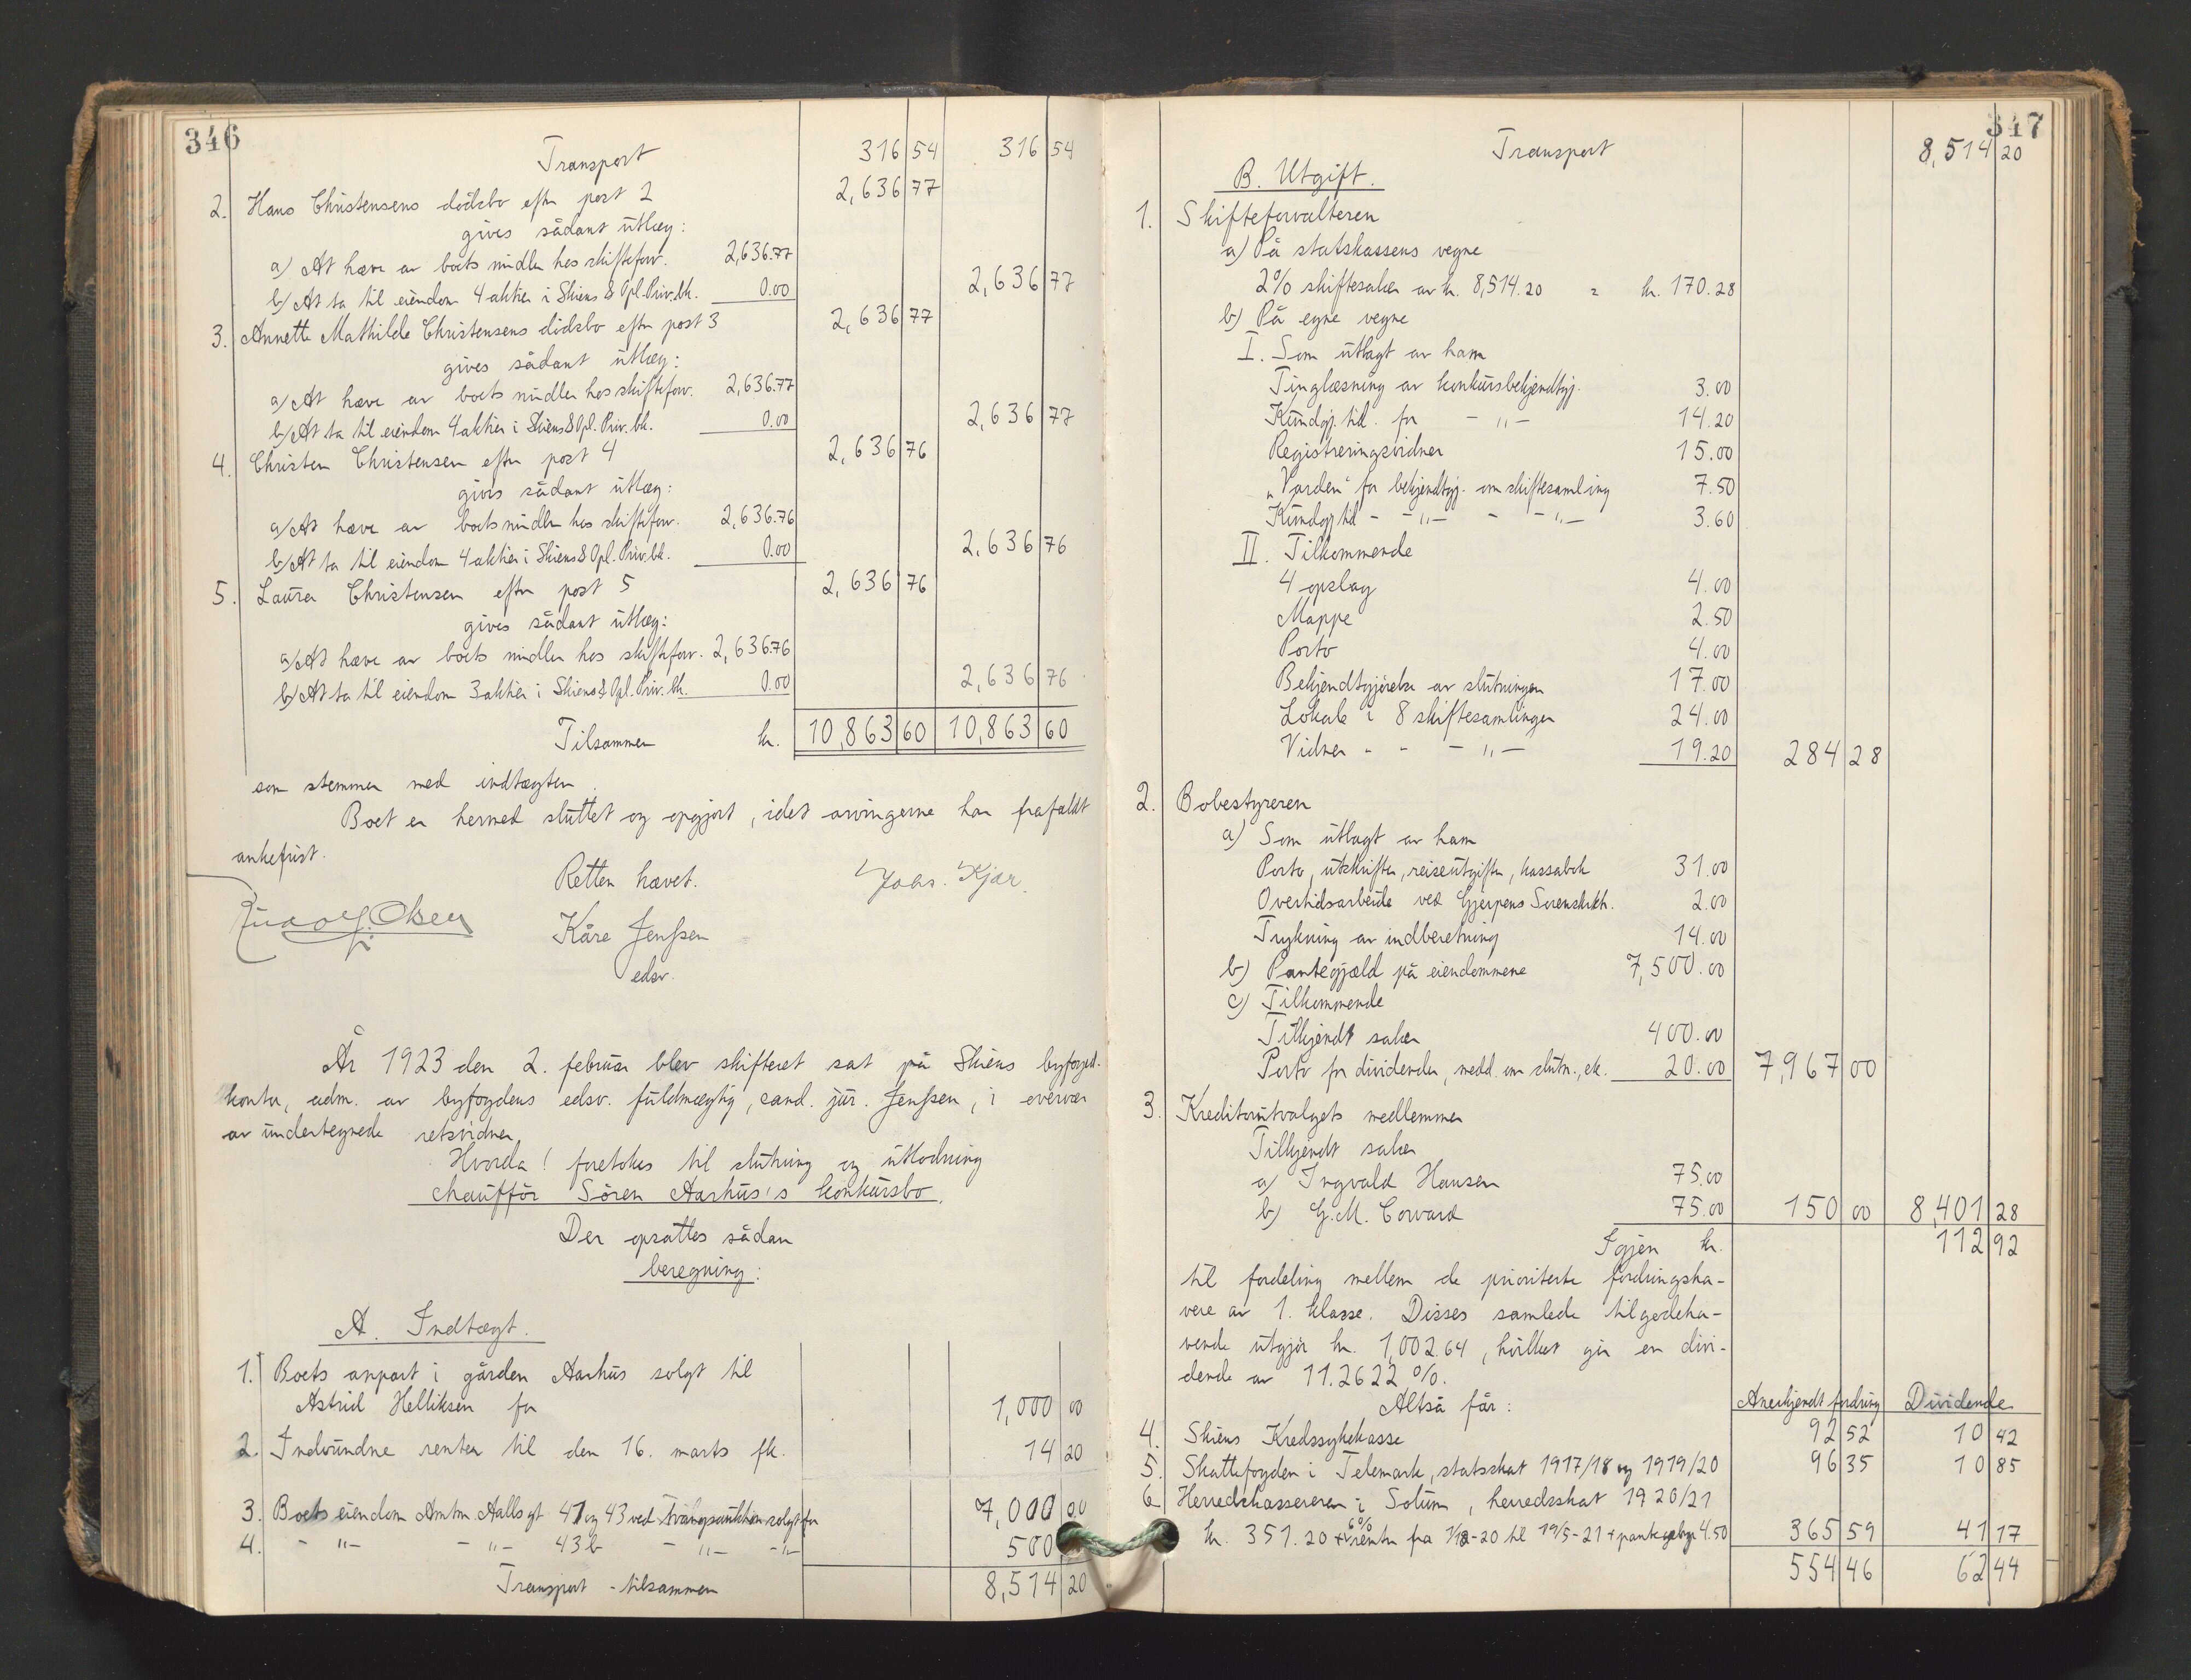 346
Transport 316 54 316 54
2. Hans Christensens dödsbo efter post 2 2,636 77
gives sådant utlæg:
a) At hæve av boets midler hos skifteforv. 2,636.77
b) At ta til eiendom 4 aktier i Skiens & Opl. Priv.bk. 0.00 2,636 77
3. Annette Mathilde Christensens dödsbo efter post 3 2,636 77
gives sådant utlæg:
a) At hæve av boets midler hos skifteforv. 2,636.77
b) At ta til eiendom 4 aktier i Skiens & Opl. Priv. bk. 0.00 2,636 77
4. Christen Christensen efter post 4 2,636 76
gives sådant utlæg:
a) At hæve av boets midler hos skifteforv. 2,636.76
b) At ta til eiendom 4 aktier i Skiens & Opl. Priv.bk. 0.00 2,636 76
5. Laura Christensen efter post 5 2,636 76
gives sådant utlæg:
a) At hæve av boets midler hos skifteforv. 2,636.76
b) At ta til eiendom 3 aktier i Skiens & Opl. Priv. bk. 0.00 2,636 76
Tilsammen kr. 10,863 60 10,863 60
som stemmer med indtægten.
Boet er hermed sluttet og opgjort, idet arvingerne har frafaldt
ankefrist.
Retten hævet. Johs. Kjær.
Rudolf Olsen Kåre Jenssen
edsv.
År 1923 den 2. februar blev skifteret sat på Skiens byfoged-
kontor, adm. av byfogdens edsv. fuldmægtig, cand. jur. Jenssen, i overvær
av undertegnede retsvidner.
Hvorda! foretokes til slutning og utlodning
chaufför Sören Aarhus's konkursbo.
Der opsattes sådan
beregning:
A. Indtægt.
1. Boets anpart i gården Aarhus solgt til
Astrid Helliksen for 1,000 00
2. Indvundne renter til den 16. marts fk. 14 20
3. Boets eiendom Amtm Aallsgt 41 og 43 ved tvangsauktion solgt for 7,000 00
4. - "- - "- 43b - "- -"- 500
Transport - tilsammen 8,514 20
347
Transport 8,514 20
B. Utgift.
1. Skifteforvalteren
a) På statskassens vegne
2% skiftesalær av kr. 8,514.20 = kr. 170.28
b) På egne vegne
I. Som utlagt av ham
Tinglæsning av konkursbekjendtgj. 3.00
Kundgj. tid. for - "- 14.20
Registreringsvidner 15.00
"Varden" for bekjendtgj. om skiftesamling 7.50
Kundgj tid - - "- - - "- 3.60
II. Tilkommende
4 opslag 4.00
Mappe 2.50
Porto 4.00
Bekjendtgjörelse av slutningen 17.00
Lokale i 8 skiftesamlinger 24.00
Vidner - - - "- 19.20 284 28
2. Bobestyreren
a) Som utlagt av ham
Porto, utskrifter, reiseutgifter, kassabok 31.00
Overtidsarbeide ved Gjerpens Sorenskrk. 2.00
Trykning av indberetning 14.00
b) Pantegjæld på eiendommene 7,500.00
c) Tilkommende
Tilkjendt salær 400.00
Porto for dividender, medd. om slutn., etc. 20.00 7,967 00
3. Kreditorutvalgets medlemmer
Tilkjendt salær
a) Ingvald Hansen 75.00
b) G. M. Corvard 75.00 150 00 8,401 28
Igjen kr. 112 92
til fordeling mellem de prioriterte fordringsha-
vere av 1. klasse. Disses samlede tilgodeha-
vende utgjör kr. 1,002.64, hvilket gir en divi-
dende av 11.2622 %.
Altså får: Anerkjendt fordring Dividende
4. Skiens Kredssykekasse 92 52 10 42
5. Skattefogden i Telemark, statsskat 1917/18 og 1919/20 96 35 10 85
6. Herredskassereren i Solum, herredsskat 1920/21
kr. 351.20 + 6% renter fra 1/12-20 til 19/5-21 + pantegebyr 4.50 365 59 41 17
554 46 62 44